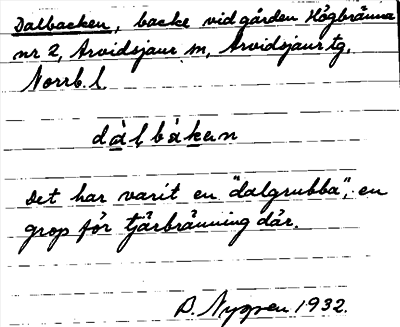 Dalbacken, backe vid gården Högbränna
nr 2, Arvidsjaur sn, Arvidsjaur tg,
Norrb. l.
dàlbàkен
Det har varit en "dalgrubba", en
grop för tjärbränning där.
D. Nygren 1932.